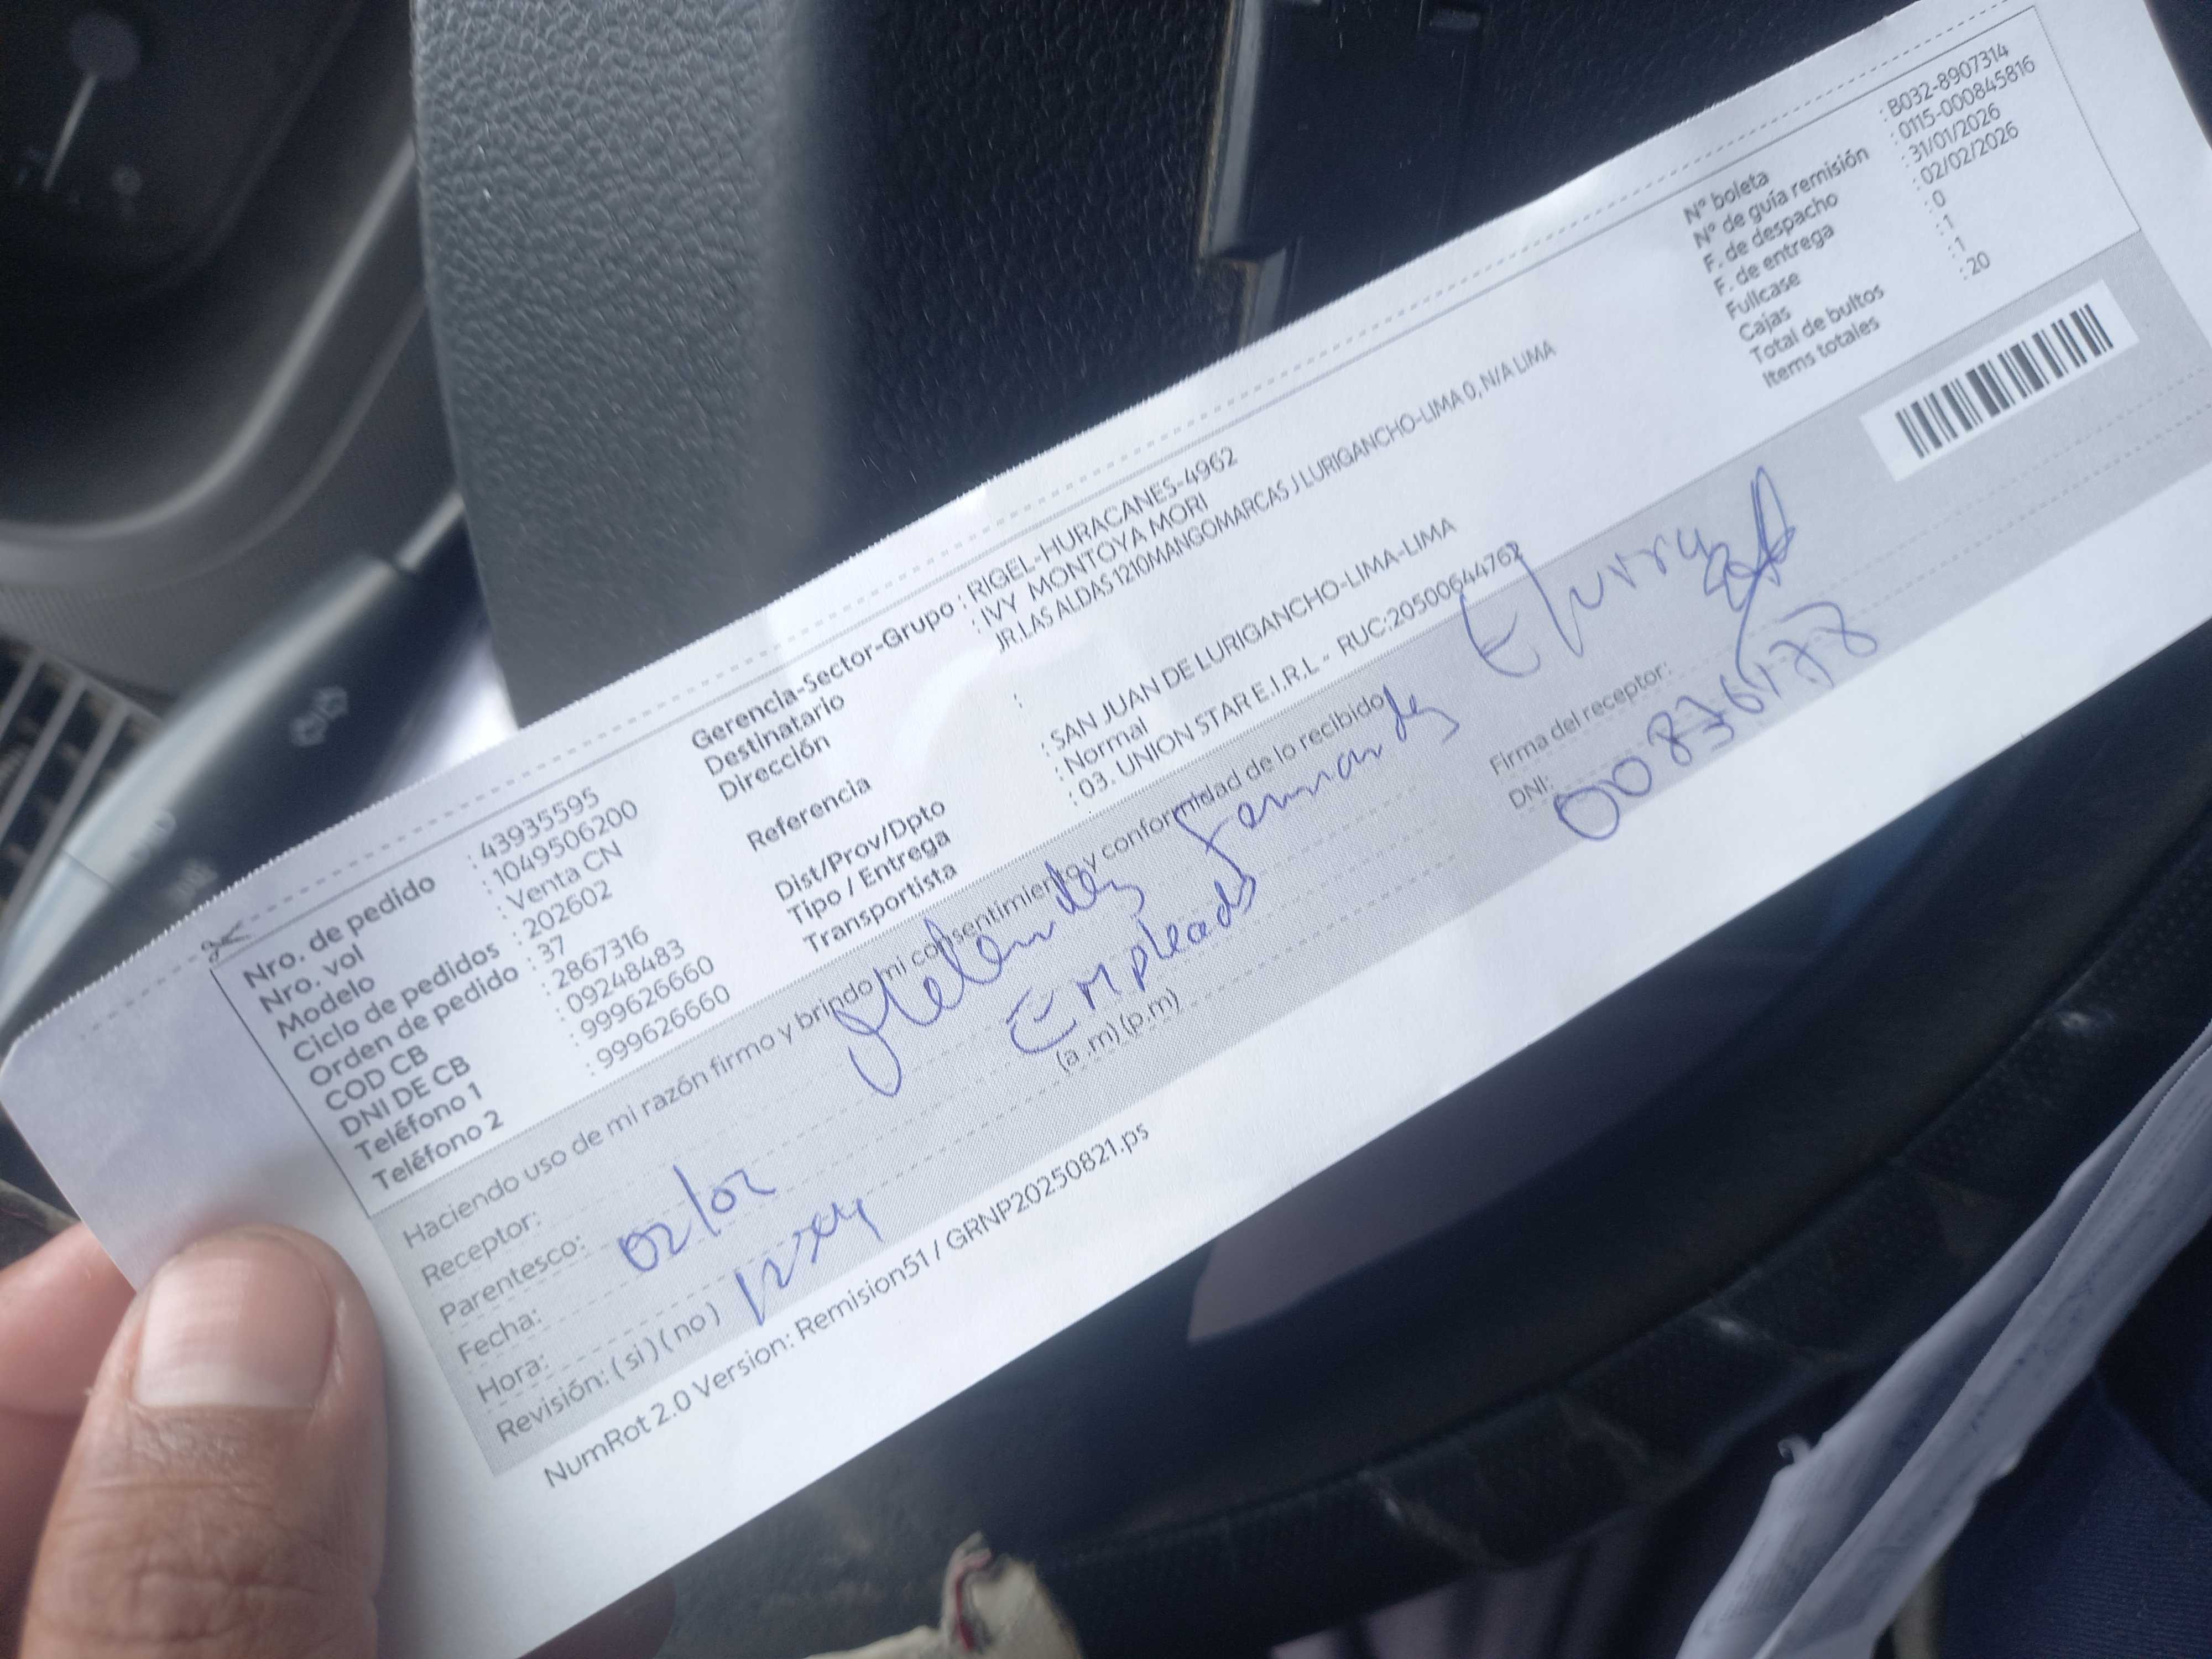 Nro. de pedido : 43935595
Nro. vol : 1049506200
Modelo : Venta CN
Ciclo de pedidos : 202602
Orden de pedido : 37
COD CB : 2867316
DNI DE CB : 09248483
Teléfono 1 : 999626660
Teléfono 2 : 999626660
Gerencia-Sector-Grupo : RIGEL-HURACANES-4962
Destinatario : IVY MONTOYA MORI
Dirección JR.LAS ALDAS 1210MANGOMARCAS J LURIGANCHO-LIMA 0, N/A LIMA
Referencia :
Dist/Prov/Dpto : SAN JUAN DE LURIGANCHO-LIMA-LIMA
Tipo / Entrega : Normal
Transportista : 03. UNION STAR E.I.R.L - RUC:20500644762
N° boleta : B032-8907314
N° de guía remisión : 0115-000845816
F. de despacho : 31/01/2026
F. de entrega : 02/02/2026
Fullcase : 0
Cajas : 1
Total de bultos : 1
Items totales : 20
Haciendo uso de mi razón firmo y brindo mi consentimiento y conformidad de lo recibido
Receptor:
Parentesco: Empleado
Fecha: 02/02
Hora: (a.m) (p.m)
Revisión: (si) (no)
Firma del receptor:
DNI:
NumRot 2.0 Version: Remision51 / GRNP20250821.ps